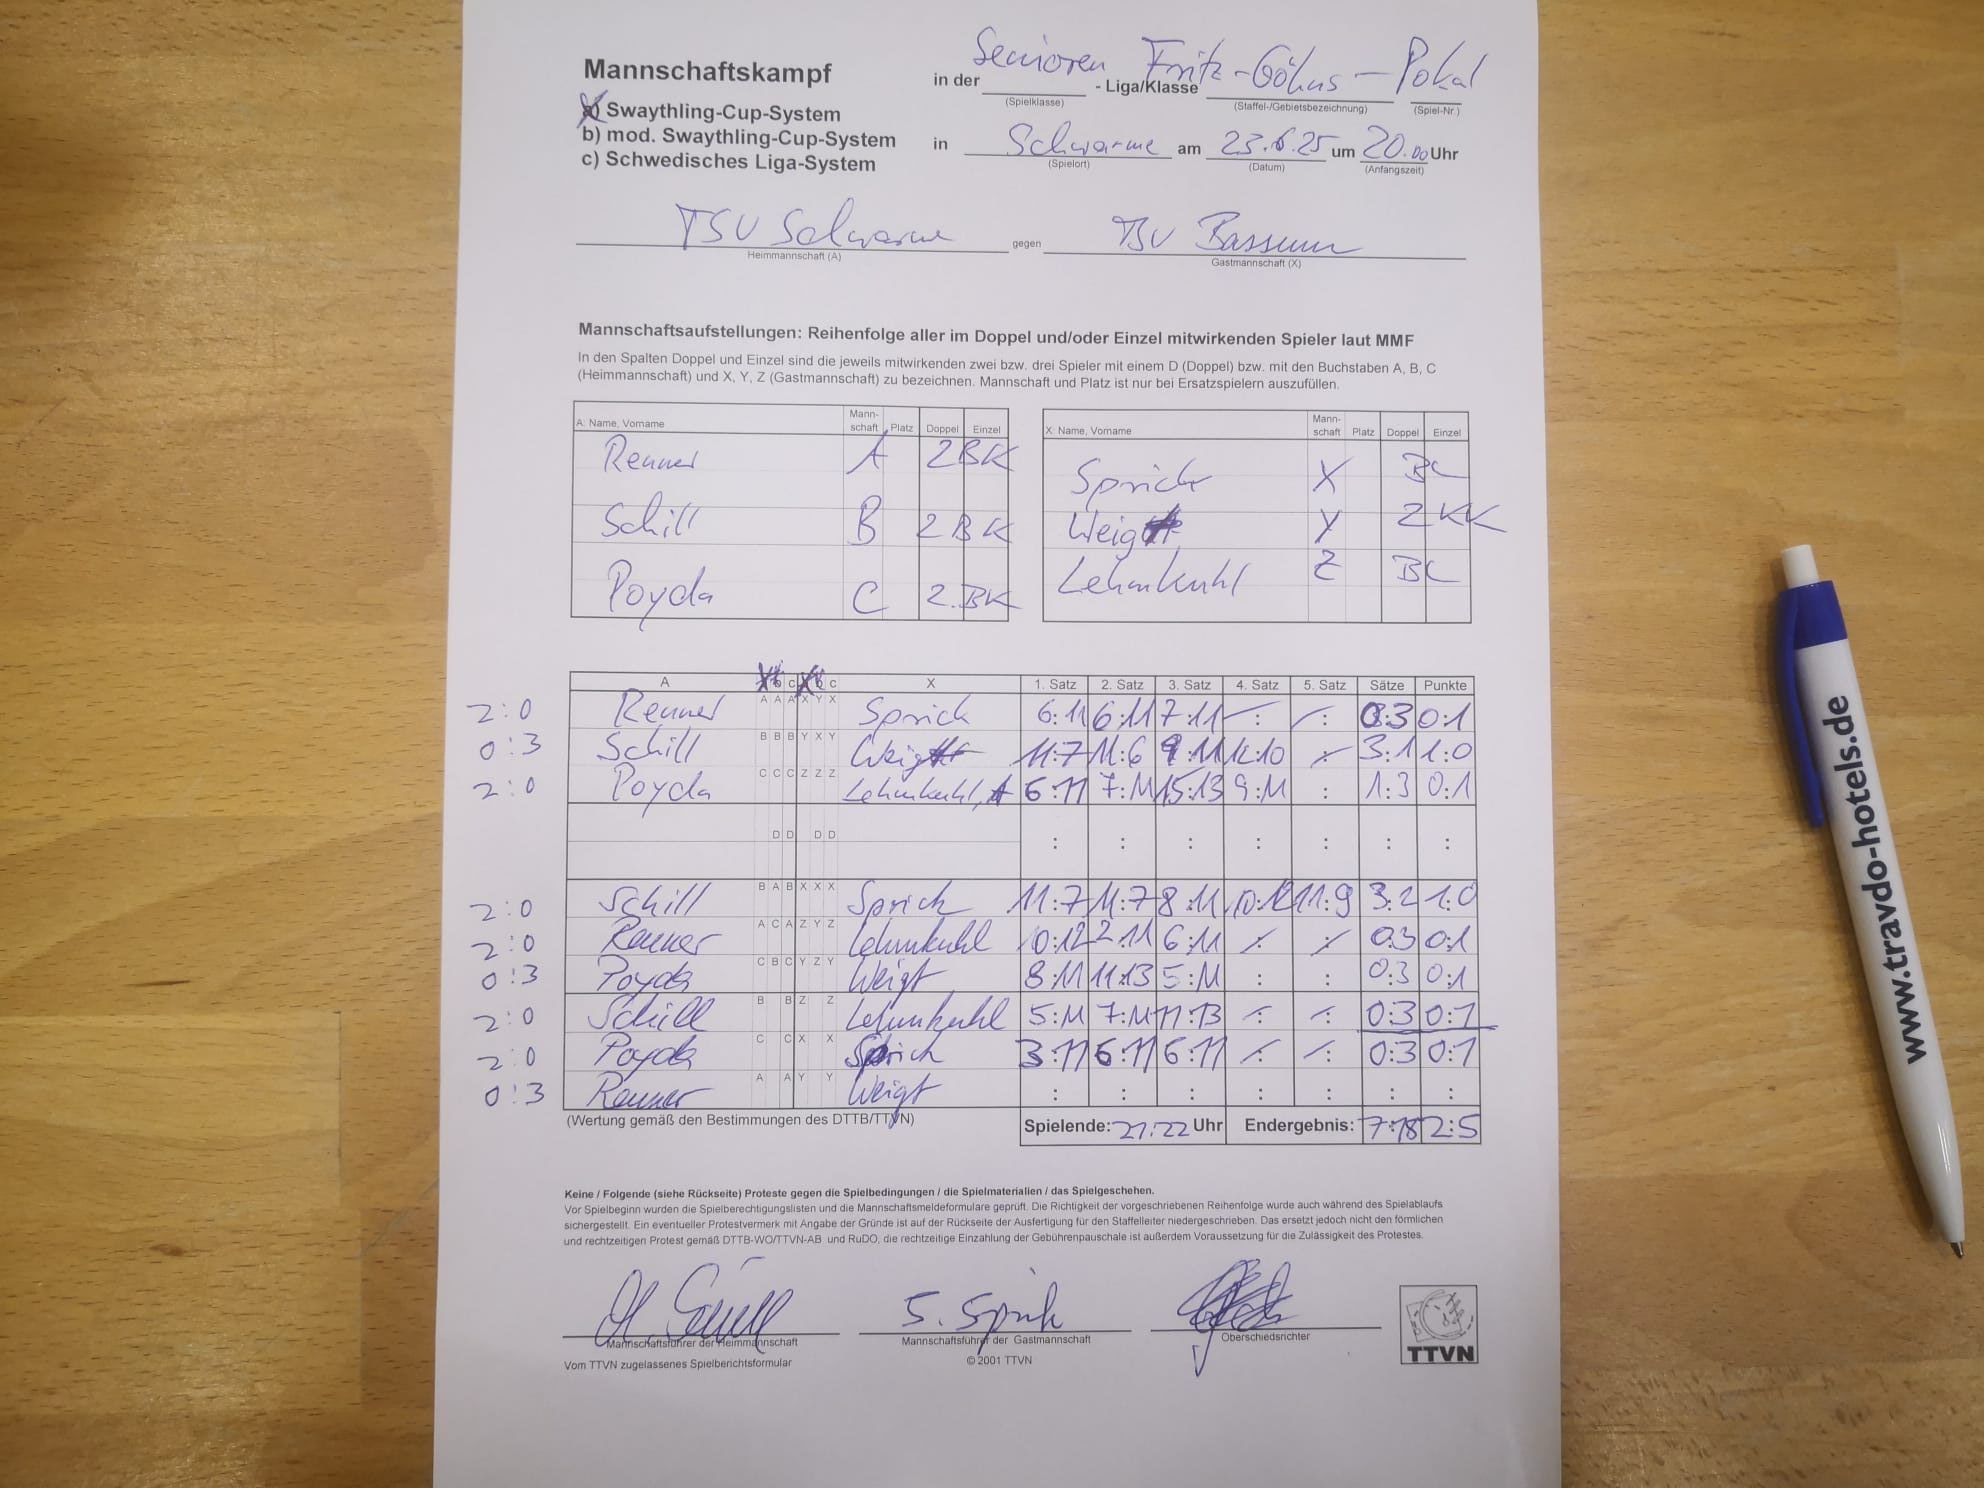 Senioren Fritz-Göhns-Pokal
Mannschaftskampf in der - Liga/Klasse
(Spielklasse) (Staffel-/Gebietsbezeichnung) (Spiel-Nr.)
a) Swaythling-Cup-System
b) mod. Swaythling-Cup-System
c) Schwedisches Liga-System
in Schwarme am 23.6.25 um 20.00 Uhr
(Spielort) (Datum) (Anfangszeit)
TSV Schwarme gegen TSV Bassum
Heimmannschaft (A) Gastmannschaft (X)
Mannschaftsaufstellungen: Reihenfolge aller im Doppel und/oder Einzel mitwirkenden Spieler laut MMF
In den Spalten Doppel und Einzel sind die jeweils mitwirkenden zwei bzw. drei Spieler mit einem D (Doppel) bzw. mit den Buchstaben A, B, C
(Heimmannschaft) und X, Y, Z (Gastmannschaft) zu bezeichnen. Mannschaft und Platz ist nur bei Ersatzspielern auszufüllen.
A: Name, Vorname Mann-schaft Platz Doppel Einzel
Renner A 2BK
Schill B 2BK
Poyda C 2.BK
X: Name, Vorname Mann-schaft Platz Doppel Einzel
Sprick X BL
Weigt Y 2KK
Lehmkuhl Z BL
A b c b c X 1. Satz 2. Satz 3. Satz 4. Satz 5. Satz Sätze Punkte
2:0 Renner A A A X Y X Sprick 6:11 6:11 7:11 : : 0:3 0:1
0:3 Schill B B B Y X Y Weigt 11:7 11:6 9:11 12:10 : 3:1 1:0
2:0 Poyda C C C Z Z Z Lehmkuhl, 6:11 7:11 15:13 9:11 : 1:3 0:1
D D D D : : : : : : :
2:0 Schill B A B X X X Sprick 11:7 11:7 8:11 10:12 11:9 3:2 1:0
2:0 Renner A C A Z Y Z Lehmkuhl 10:12 2:11 6:11 : : 0:3 0:1
0:3 Poyda C B C Y Z Y Weigt 8:11 11:13 5:11 : : 0:3 0:1
2:0 Schill B B Z Z Lehmkuhl 5:11 7:11 11:13 : : 0:3 0:1
2:0 Poyda C C X X Sprick 3:11 6:11 6:11 : : 0:3 0:1
0:3 Renner A A Y Y Weigt : : : : : : :
(Wertung gemäß den Bestimmungen des DTTB/TTVN) Spielende: 21:22 Uhr Endergebnis: 7:18 2:5
Keine / Folgende (siehe Rückseite) Proteste gegen die Spielbedingungen / die Spielmaterialien / das Spielgeschehen.
Vor Spielbeginn wurden die Spielberechtigungslisten und die Mannschaftsmeldeformulare geprüft. Die Richtigkeit der vorgeschriebenen Reihenfolge wurde auch während des Spielablaufs
sichergestellt. Ein eventueller Protestvermerk mit Angabe der Gründe ist auf der Rückseite der Ausfertigung für den Staffelleiter niedergeschrieben. Das ersetzt jedoch nicht den förmlichen
und rechtzeitigen Protest gemäß DTTB-WO/TTVN-AB und RuDO, die rechtzeitige Einzahlung der Gebührenpauschale ist außerdem Voraussetzung für die Zulässigkeit des Protestes.
S. Sprick
Mannschaftsführer der Heimmannschaft Mannschaftsführer der Gastmannschaft Oberschiedsrichter
Vom TTVN zugelassenes Spielberichtsformular © 2001 TTVN
TTVN
www.travdo-hotels.de